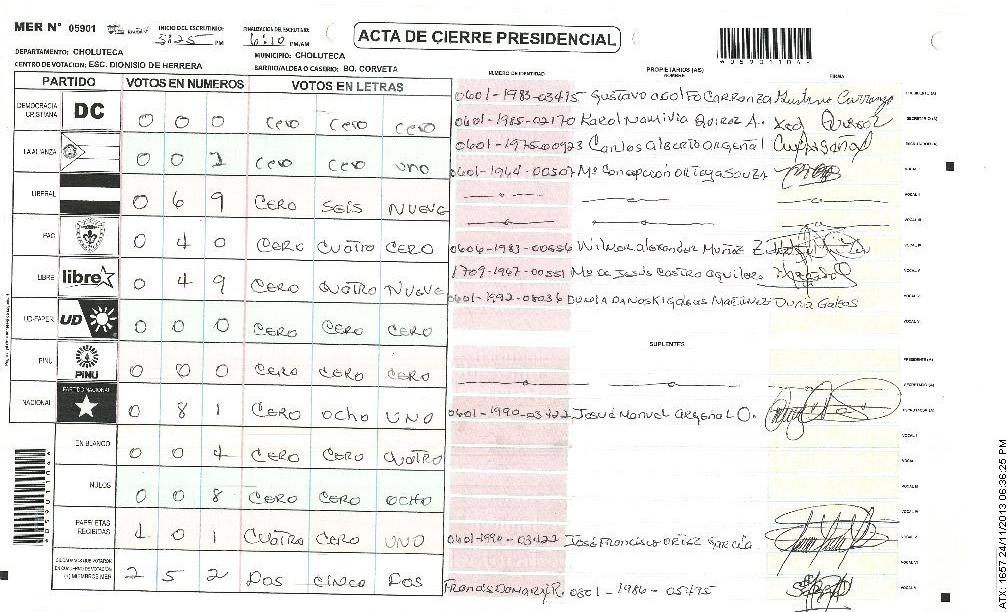 MER N° 05901
INICIO DEL ESCRUTINIO: 5:25 PM
FINALIZACION DEL ESCRUTINIO: 6:10 PM/AM
ACTA DE CIERRE PRESIDENCIAL
DEPARTAMENTO: CHOLUTECA
MUNICIPIO: CHOLUTECA
CENTRO DE VOTACION: ESC. DIONISIO DE HERRERA
BARRIO/ALDEA O CASERIO: BO. CORVETA
PARTIDO VOTOS EN NUMEROS VOTOS EN LETRAS
DEMOCRACIA CRISTIANA DC 0 0 0 cero cero cero
LA ALIANZA 0 0 1 cero cero uno
LIBERAL 0 6 9 CERO SEIS NUEVE
PAC 0 4 0 CERO CUATRO CERO
LIBRE libre 0 4 9 CERO CUATRO NUEVE
UD-FAPER UD 0 0 0 CERO CERO CERO
PINU PINU 0 0 0 CERO CERO CERO
NACIONAL PARTIDO NACIONAL 0 8 1 CERO OCHO UNO
EN BLANCO 0 0 4 CERO CERO CUATRO
NULOS 0 0 8 CERO CERO OCHO
PAPELETAS RECIBIDAS 4 0 1 CUATRO CERO UNO
CIUDADANOS QUE VOTARON EN CUADERNO DE VOTACION (+) MIEMBROS MER 2 5 2 DOS CINCO DOS
NUMERO DE IDENTIDAD PROPIETARIOS (AS) NOMBRE FIRMA
0601-1983-03415 Gustavo Adolfo Carranza Gustavo Carranza PRESIDENTE (A)
0601-1985-02170 Karol Quiroz A. Quiroz SECRETARIO (A)
0601-1975-00923 Carlos Alberto Argeñal ESCRUTADOR (A)
0601-1964-00507 Mª Concepción Ortega Souza VOCAL I
VOCAL II
VOCAL III
0606-1983-00556 Wilmer Alexander Muñoz Z VOCAL IV
1709-1967-00551 Mª de Jesús Castro Aguilera VOCAL V
0601-1992-08036 Galeas Martinez Dunia Galeas
SUPLENTES
PRESIDENTE (A)
SECRETARIO (A)
0601-1990-03422 Josué Manuel Argeñal O. ESCRUTADOR (A)
VOCAL I
VOCAL II
VOCAL III
VOCAL IV
0601-1990-03422 José Francisco Ortiz García VOCAL V
VOCAL VI
0801-1986-05475
*05901104*
ATX: 1657 24/11/2013 06:36:25 PM